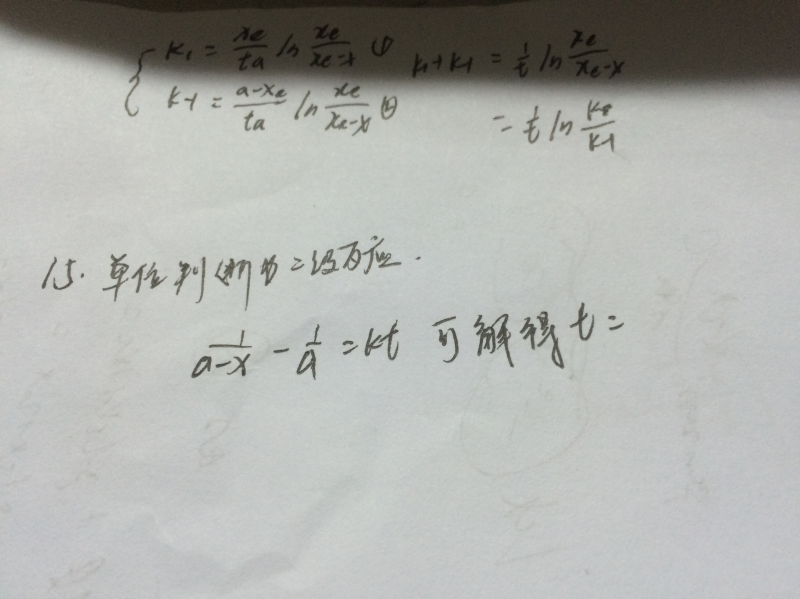 K₁ = xe/ta ln xe/(xe-x) ① K₁+K-1 = 1/t ln xe/(xe-x)
K-1 = (a-xe)/ta ln xe/(xe-x) ② = 1/t ln
15. 单位判断为二级反应.
1/(a-x) - 1/a = kt 可解得 t =